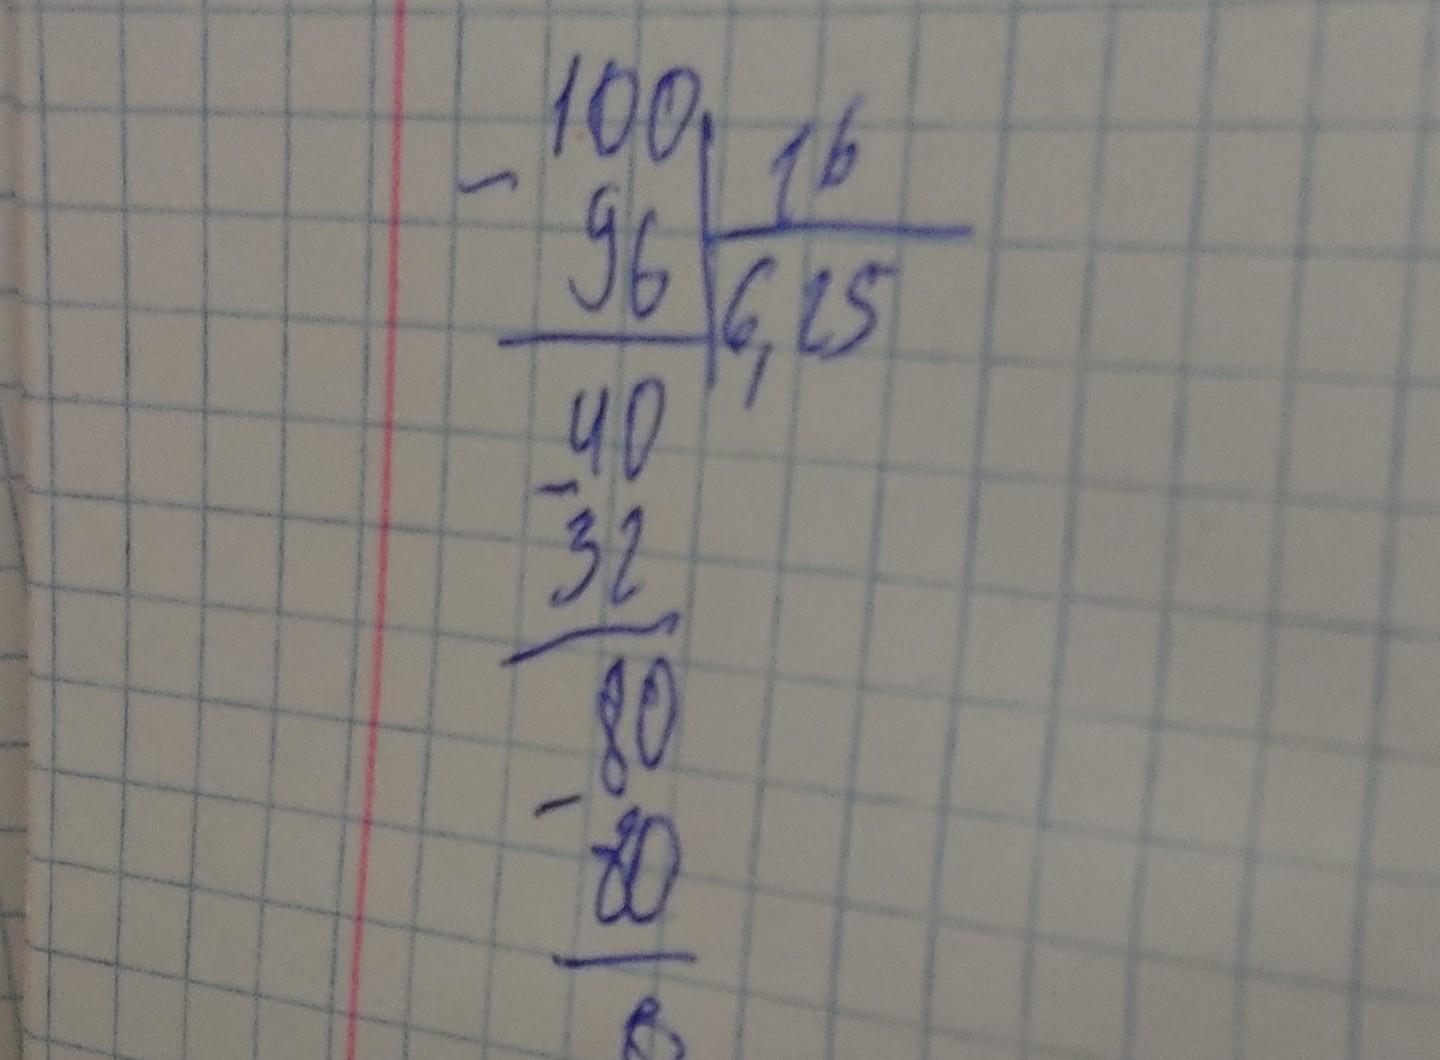 100 16
- 96 6,25
40
- 32
80
- 80
0